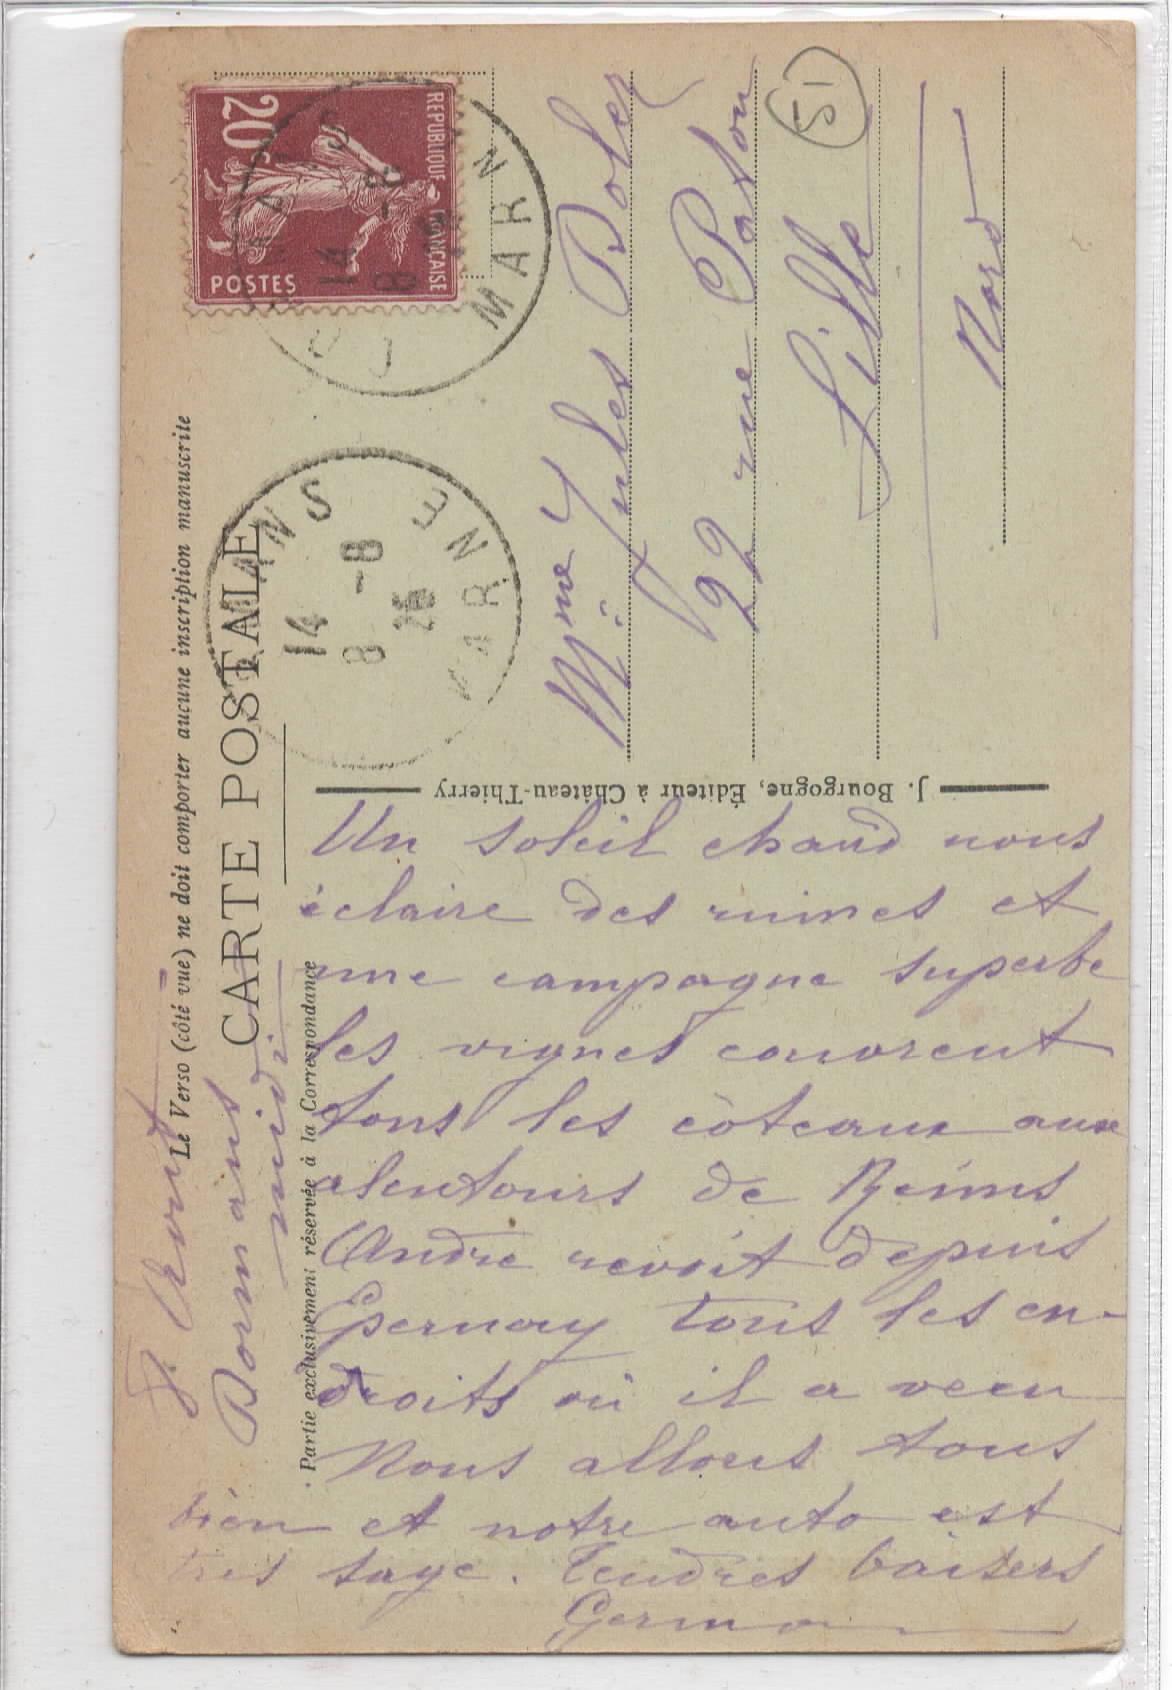 Le Verso (côté vue) ne doit comporter aucune inscription manuscrite
CARTE POSTALE
Partie exclusivement réservée à la Correspondance
J. Bourgogne, Éditeur à Château-Thierry
REPUBLIQUE FRANÇAISE
20c
POSTES
MARN
14
8 -8
MARNE
14
8 -8
26
51
Mme Jules
22 rue Patou
Lille
Nord
8 Aout
Dormans
midi
Un soleil chaud nous
éclaire des ruines et
une campagne superbe
les vignes couvrent
tous les côteaux aux
alentours de Reims
André revoit depuis
Epernay tous les en-
droits où il a vecu
Nous allons tous
bien et notre auto est
très sage. Tendres baisers